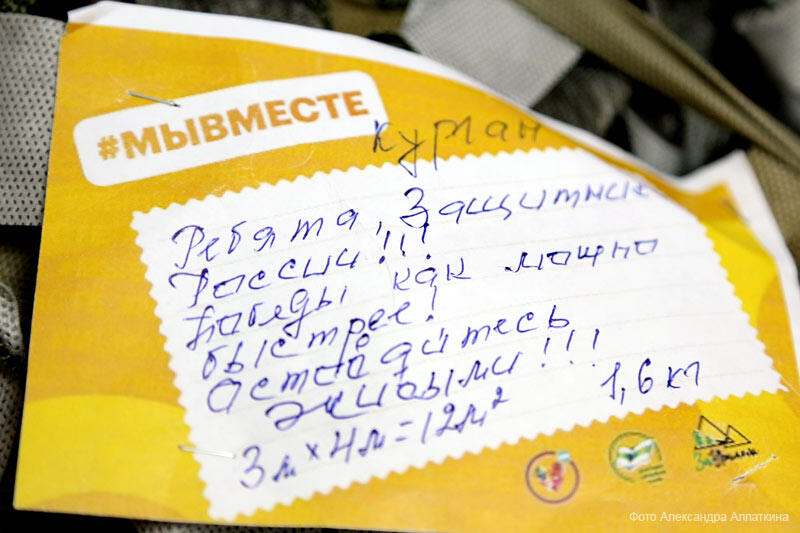 #МЫВМЕСТЕ
Курган
Ребята, Защитники
России!!!
Победы как можно
быстрее!
Оставайтесь
живыми!!!
1,6 кг
3м × 4м = 12м²
Фото Александра Алпаткина